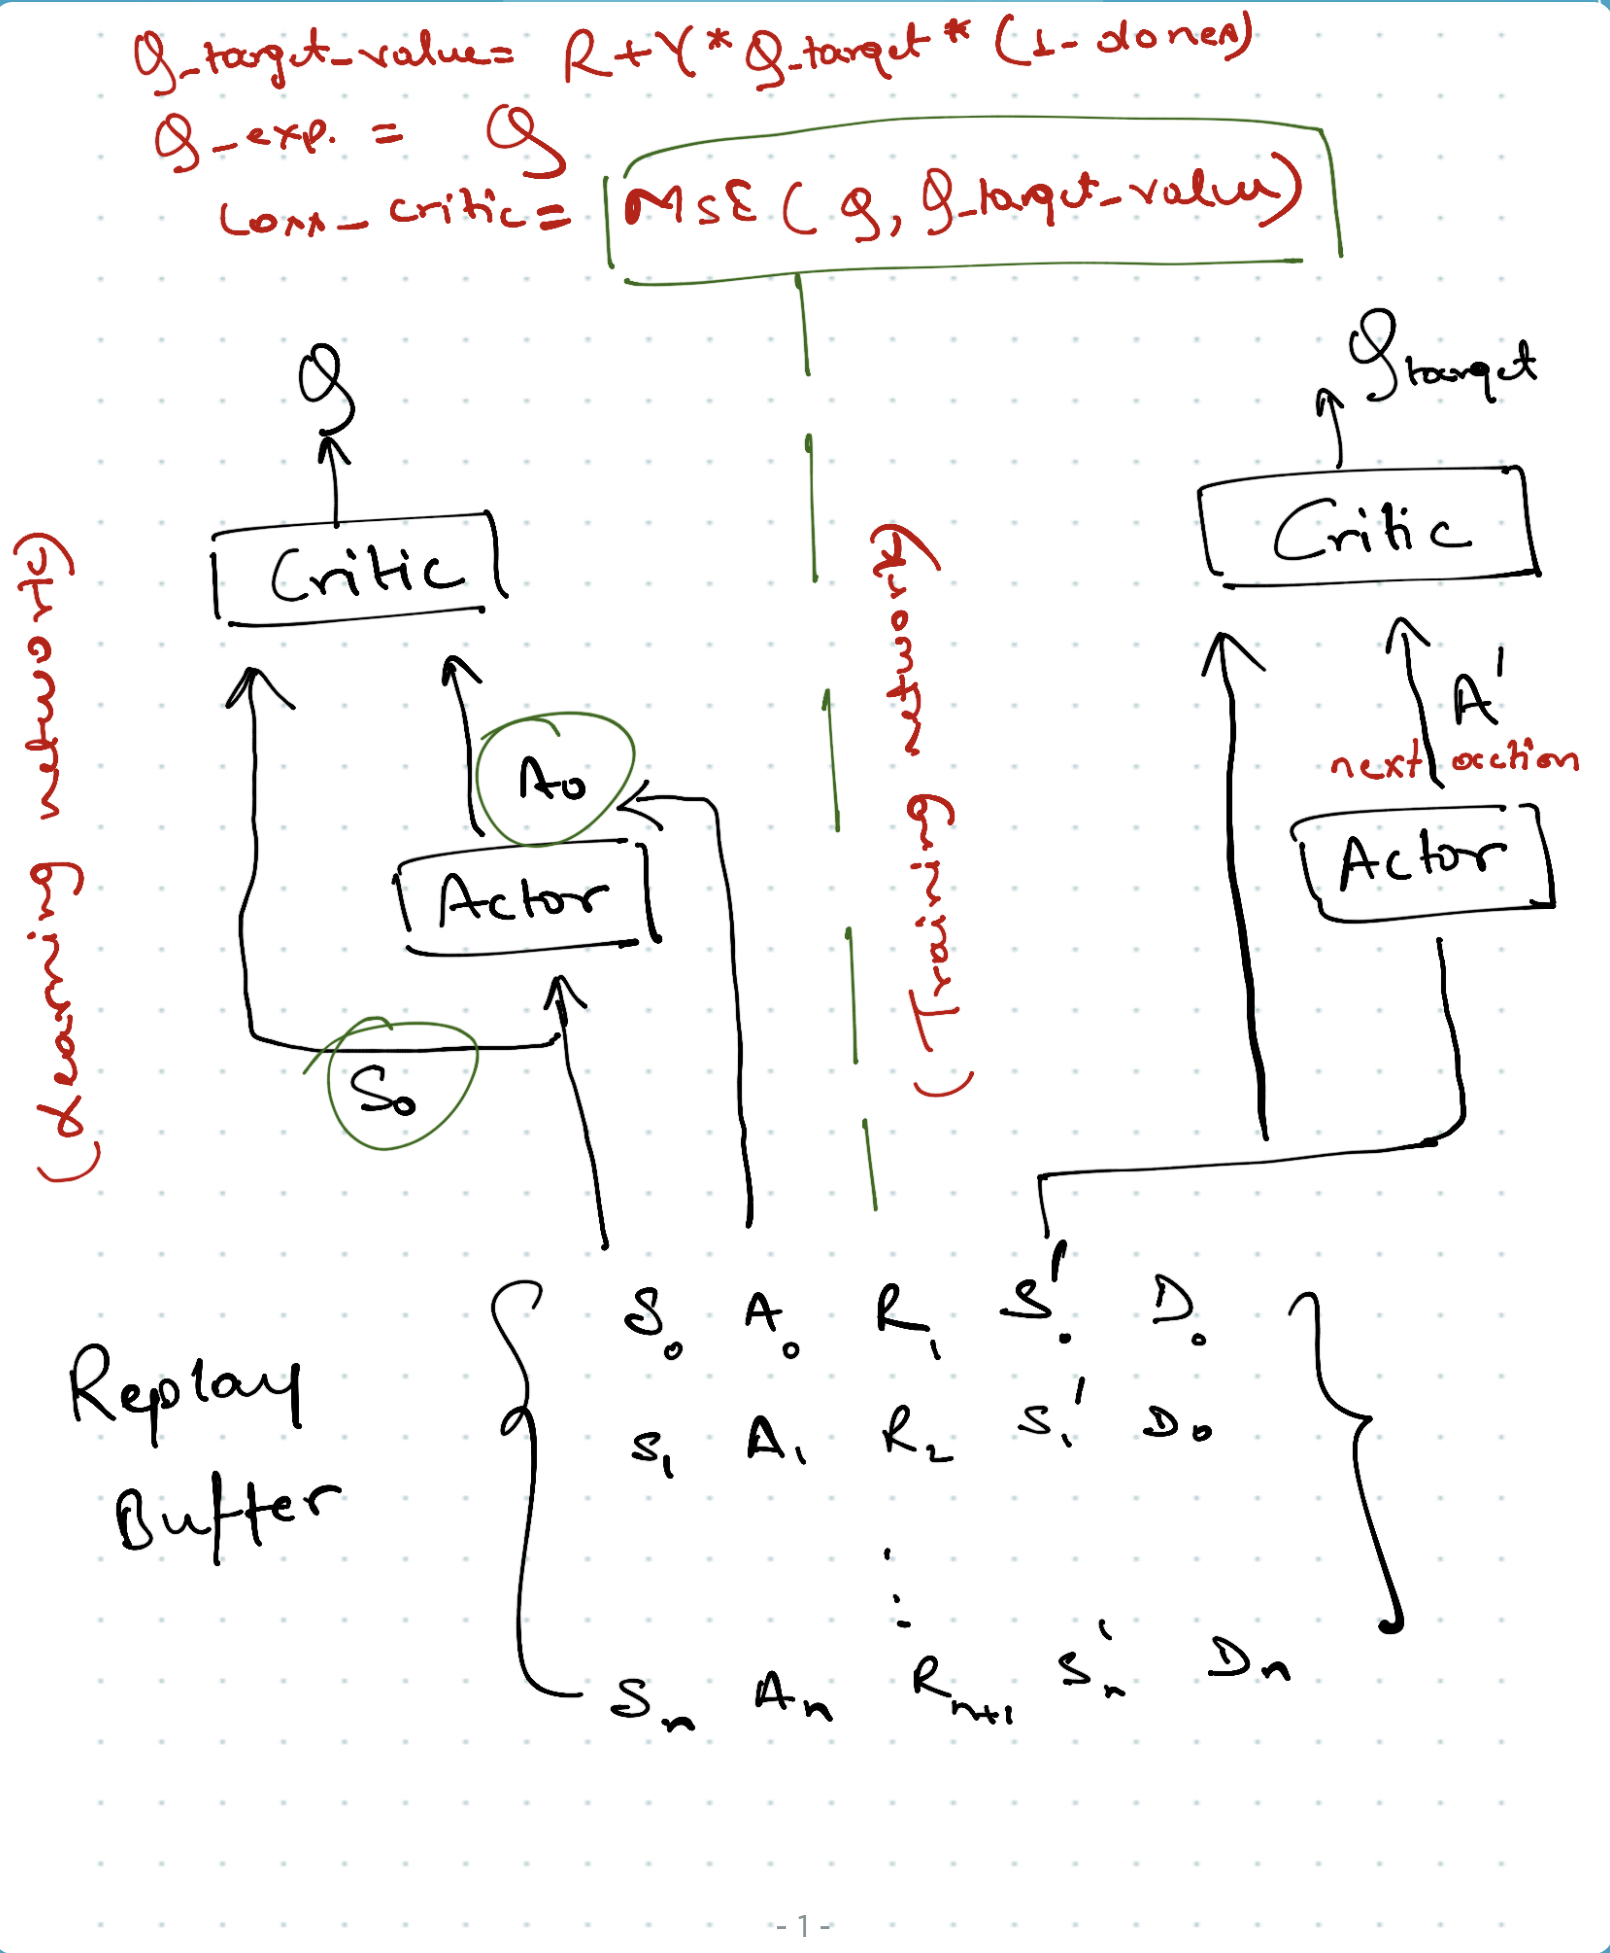 Q_target_value = R + γ * Q_target * (1 - dones)
Q_exp. = Q
Loss_critic = MSE ( Q, Q_target_value)
Q
Q target
Critic
Critic
(Learning network)
(Training network)
A0
A'
next action
Actor
Actor
S0
Replay
Buffer
S0 A0 R1 S'0 D0
S1 A1 R2 S1' D0
Sn An Rn+1 Sn' Dn
- 1 -